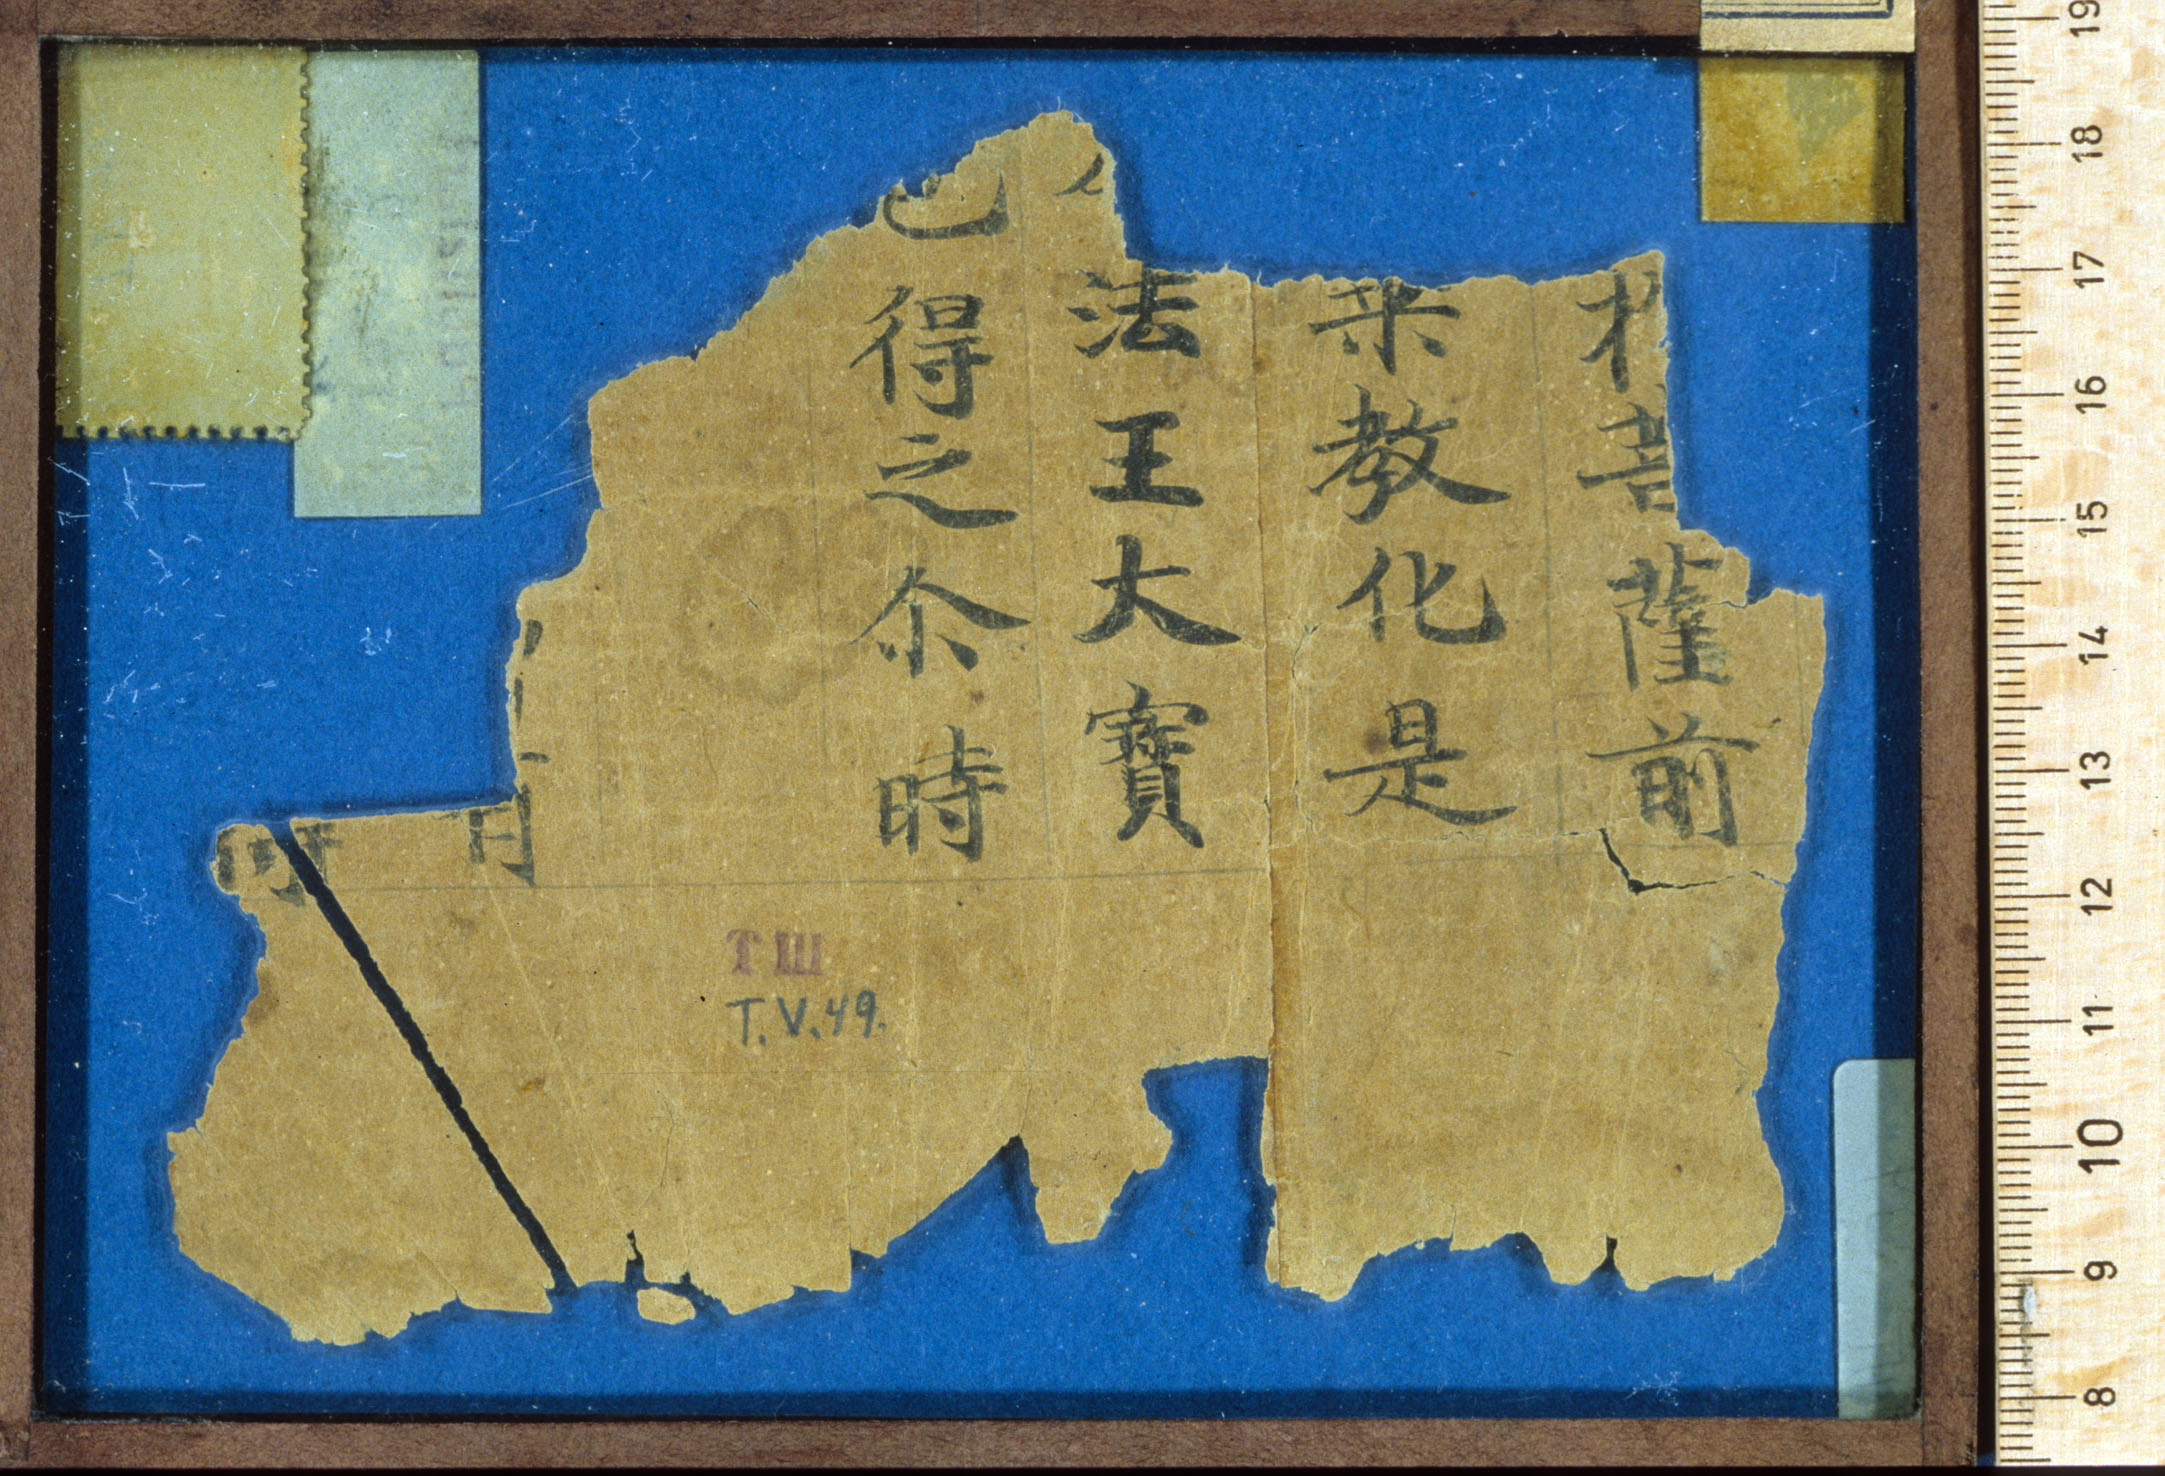 扵菩薩前
乘教化是
法王大寶
已得之尒時
T III
T.V.49.
19
18
17
16
15
14
13
12
11
10
9
8